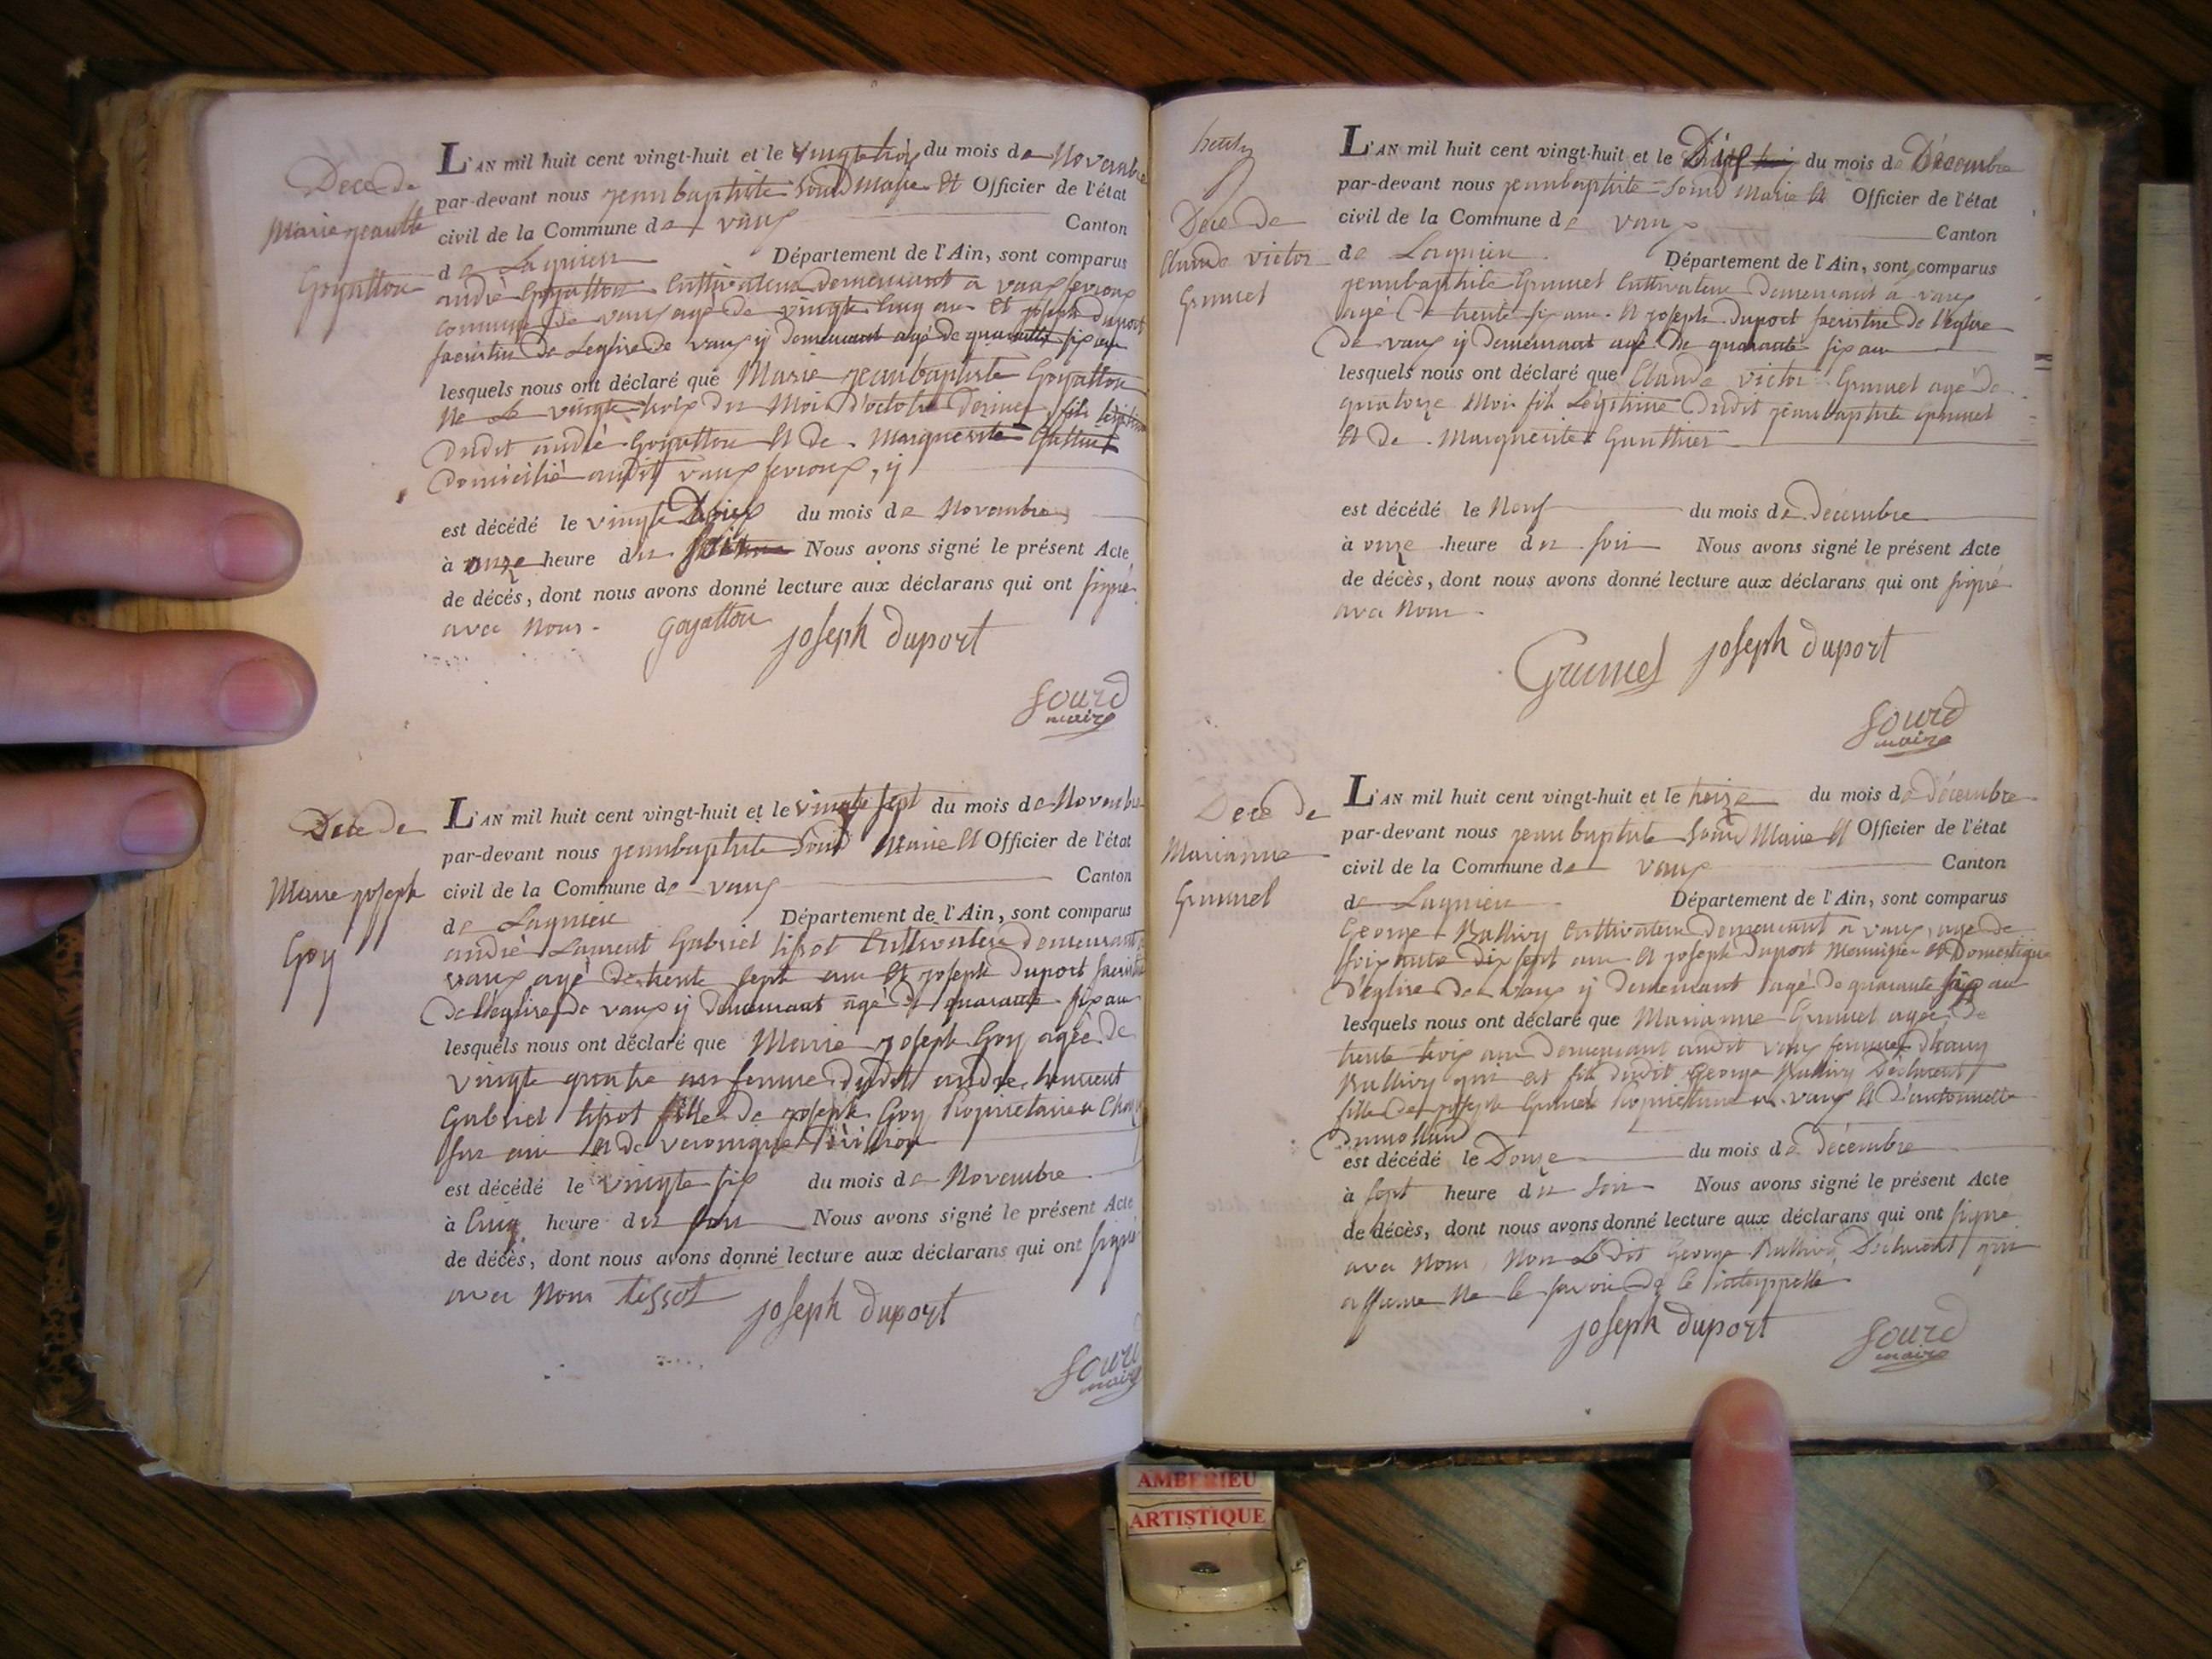 Dece de
Marie jeanbte
Goyatton
L'AN mil huit cent vingt-huit et le vingte trois du mois de Novembre
par-devant nous jeanbaptiste Sourd Maire et Officier de l'état
civil de la Commune de vaux Canton
de Lagnieu Département de l'Ain, sont comparus
andré Goyatton Cultivateur demeurant a vaux fevroux
commune de vaux agé de vingte Cinq ans et joseph duport
sacristin de Leglise de vaux y demeurant agé de quarante six ans
lesquels nous ont déclaré que Marie jeanbaptiste Goyatton
Né Le vingte trois du Mois d'octobre dernier, fils légitime
dudit andré Goyatton et de Marguerite
Domicilié audit vaux fevroux, y
est décédé le vingte deux du mois de Novembre
à onze heure du soir Nous avons signé le présent Acte
de décés, dont nous avons donné lecture aux déclarans qui ont signé
avec Nous. goyatton joseph duport
Sourd
maire
Dece de
Marie joseph
Goy
L'AN mil huit cent vingt-huit et le vingte sept du mois de Novembre
par-devant nous jeanbaptiste Sourd Maire et Officier de l'état
civil de la Commune de vaux Canton
de Lagnieu Département de l'Ain, sont comparus
andré Laurent Gabriel tisot Cultivateur demeurant a
vaux agé de trente sept ans et joseph duport sacristin
de l'eglise de vaux y demeurant agé de quarante six ans
lesquels nous ont déclaré que Marie joseph Goy agée de
vingte quatre ans femme dudit andré laurent
Gabriel tisot fille de joseph Goy Propriétaire a
sur ain et de veronique
est décédé le vingte six du mois de Novembre
à Cinq heure du soir Nous avons signé le présent Acte
de décès, dont nous avons donné lecture aux déclarans qui ont signé
avec Nous tissot joseph duport
Sourd
maire
Dece de
Claude victor
Grumel
L'AN mil huit cent vingt-huit et le Dix du mois de Décembre
par-devant nous jeanbaptiste Sourd Maire et Officier de l'état
civil de la Commune de vaux Canton
de Lagnieu Département de l'Ain, sont comparus
jeanbaptiste Grumel Cultivateur demeurant a vaux
agé de trente six ans et joseph duport sacristin de l'eglise
de vaux y demeurant agé de quarante six ans
lesquels nous ont déclaré que Claude victor Grumel agé de
quatorze Mois fils Légitime dudit jeanbaptiste Grumel
et de Marguerite Gunthier
est décédé le Neuf du mois de Décembre
à onze heure du soir Nous avons signé le présent Acte
de décès, dont nous avons donné lecture aux déclarans qui ont signé
avec Nous.
Grumel joseph duport
Sourd
maire
Dece de
Marianne
Grumel
L'AN mil huit cent vingt-huit et le treize du mois de décembre
par-devant nous jeanbaptiste Sourd Maire et Officier de l'état
civil de la Commune de vaux Canton
de Lagnieu Département de l'Ain, sont comparus
George Rullivy Cultivateur demeurant a vaux, agé de
soixante dix sept ans et joseph duport Menuisier et Domestique
d'eglise de vaux y demeurant agé de quarante six ans
lesquels nous ont déclaré que Marianne Grumel agée de
trente trois ans demeurant audit vaux femme
Rullivy qui est fils dudit George Rullivy Déclarant,
fille de joseph Grumel Propriétaire a vaux et d'antoinette
Dumolland
est décédé le Douze du mois de décembre
à sept heure du soir Nous avons signé le présent Acte
de décès, dont nous avons donné lecture aux déclarans qui ont signé
avec Nous, Non Le dit George Rullivy Déclarant, qui
affirme Ne le savoir de ce interppellé
joseph duport
Sourd
maire
AMBERIEU
ARTISTIQUE